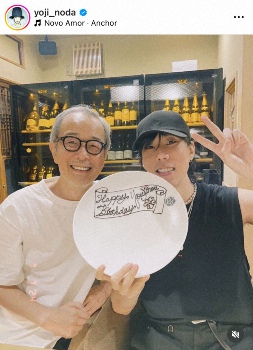 yoji_noda
Novo Amor · Anchor
Happy
Birthday